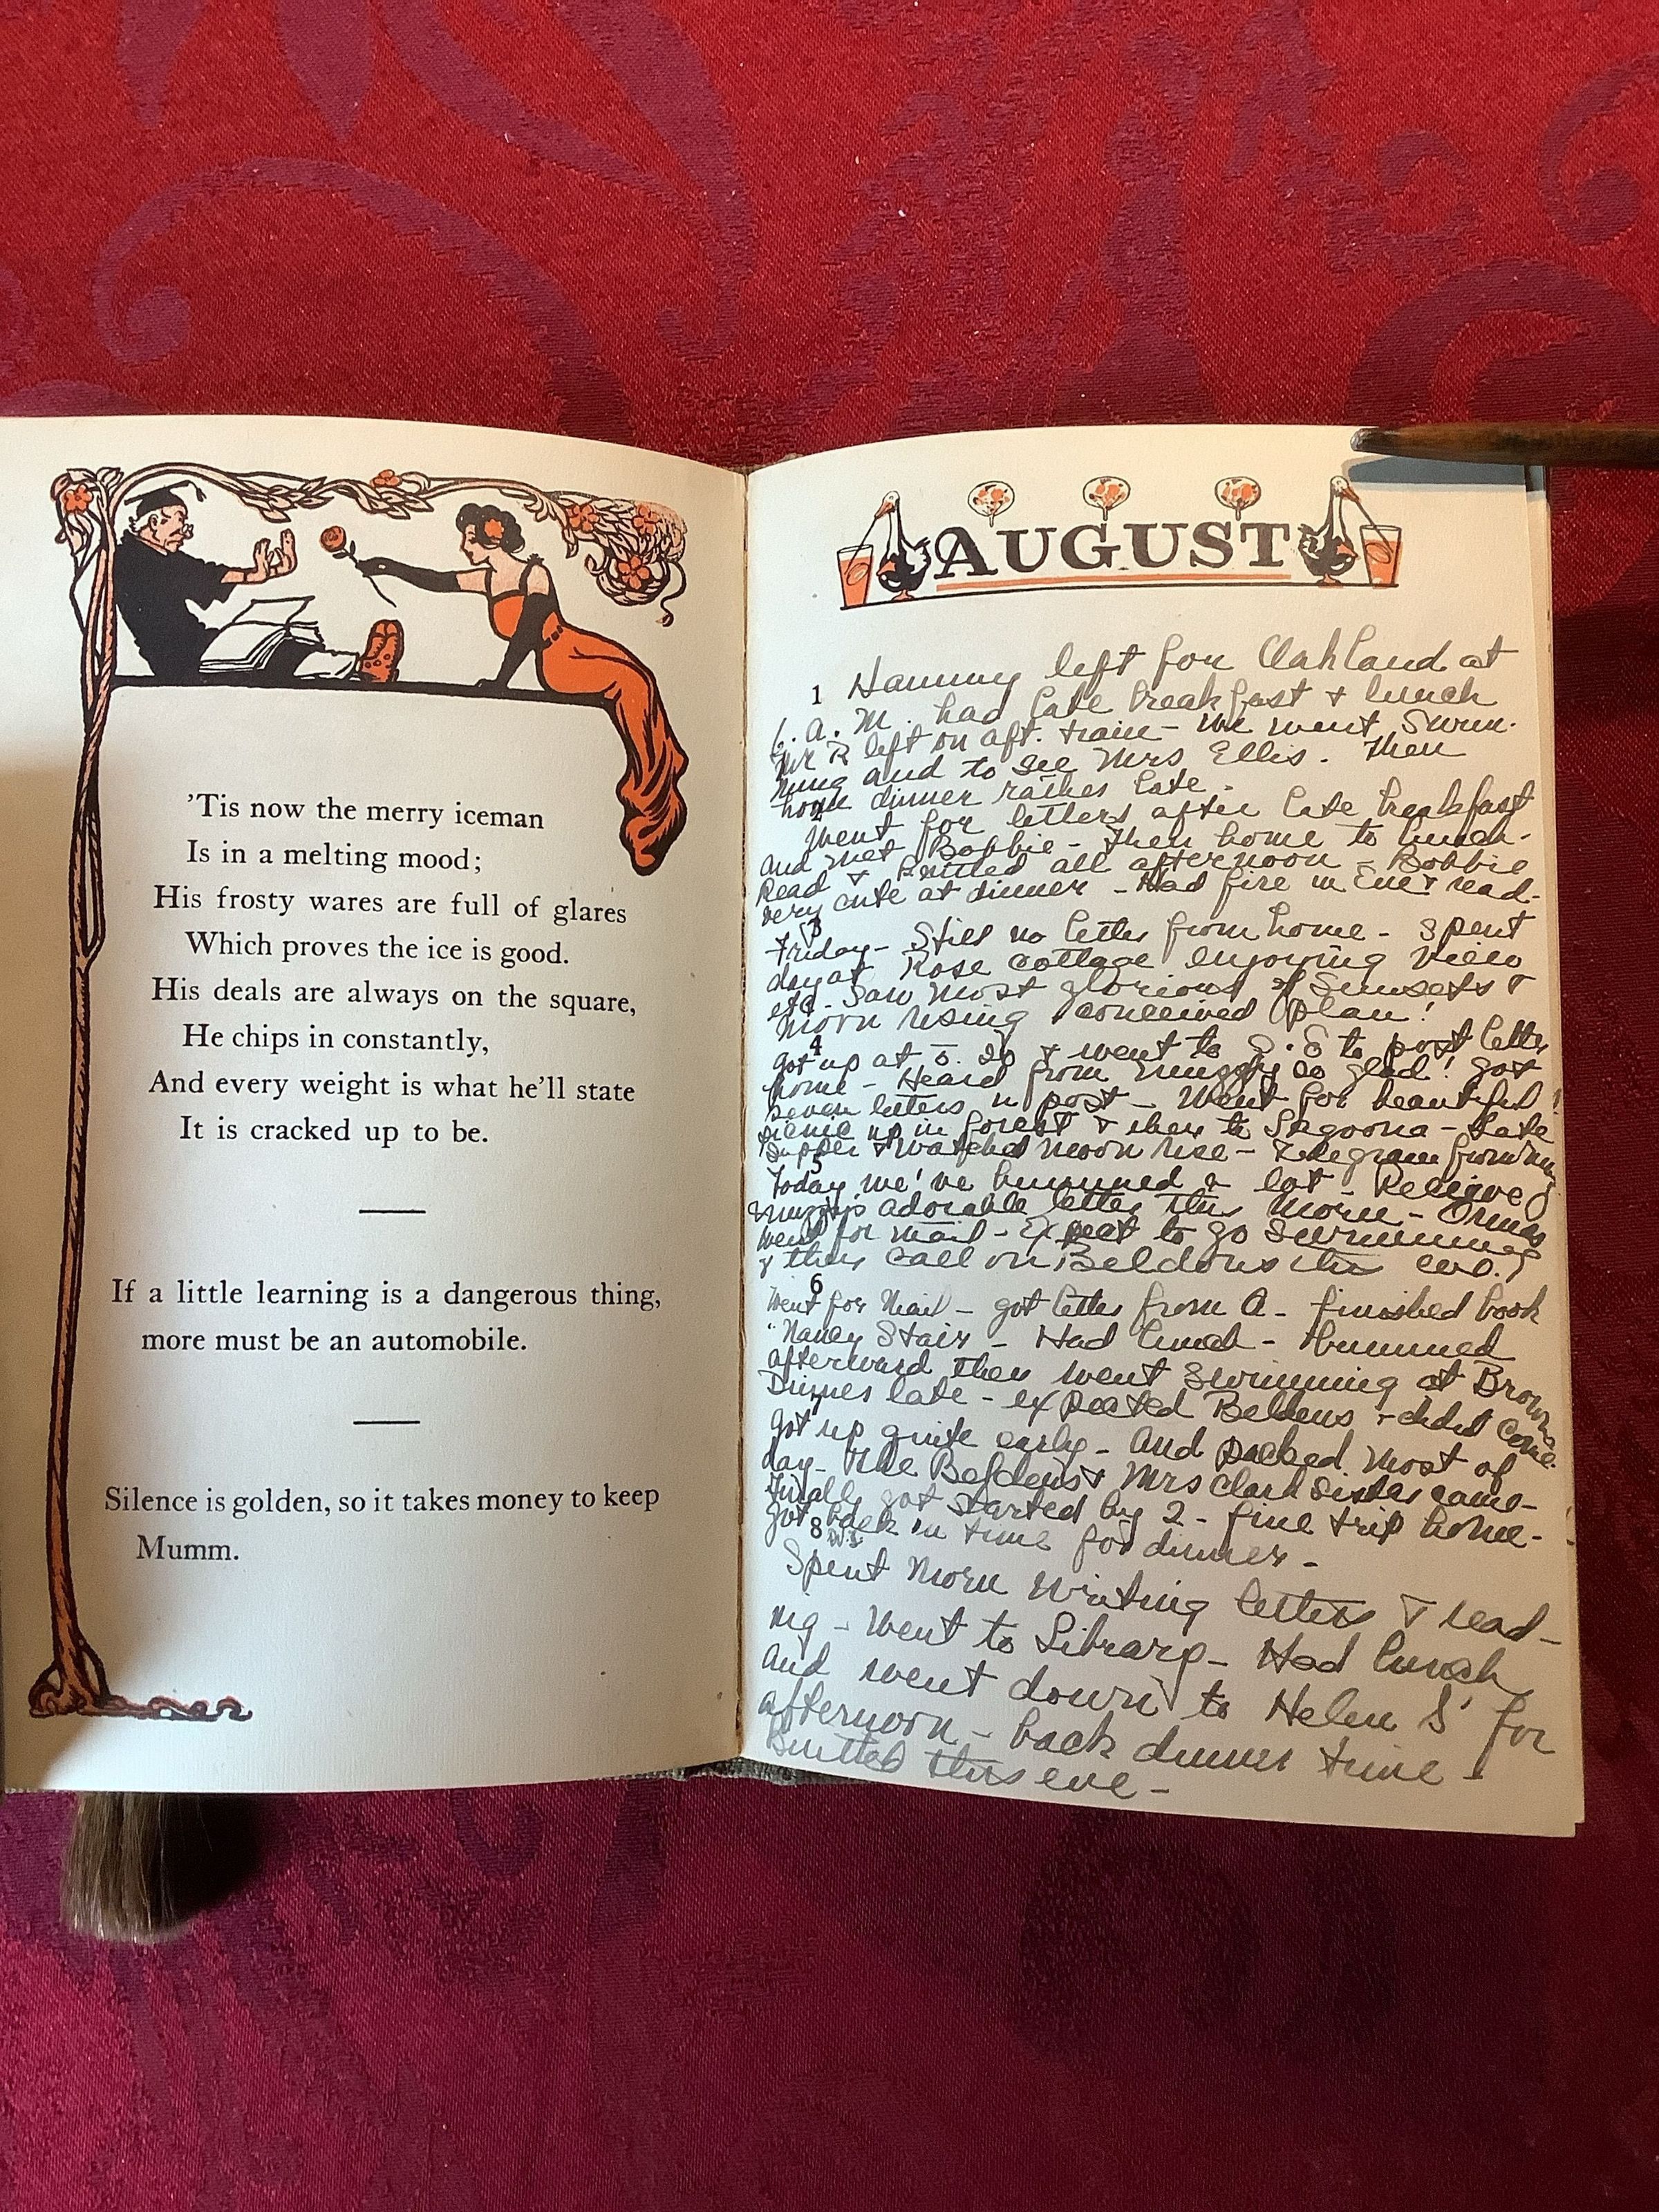 'Tis now the merry iceman
Is in a melting mood;
His frosty wares are full of glares
Which proves the ice is good.
His deals are always on the square,
He chips in constantly,
And every weight is what he'll state
It is cracked up to be.
If a little learning is a dangerous thing,
more must be an automobile.
Silence is golden, so it takes money to keep
Mumm.
AUGUST
left for Oakland at
1
6. A. M. had late breakfast + lunch
left on aft. train - we went Swim-
ming and to see Mrs Ellis. Then
home dinner rather late.
2
Went for letters after late breakfast
and met Bobbie - then home to lunch.
Read + knitted all afternoon - Bobbie
very cute at dinner - Had fire in Eve + read-
3
Friday - Still no letter from home - Spent
day at Rose cottage enjoying view
etc. Saw most glorious of Sunsets +
moon rising conceived plan!
4
got up at 5.20 + went to post letter
home - Heard from so glad! got
seven letters in post - Went for beautiful
picnic up in forest + then to Lagoona - Late
supper + watched moon rise - telegram from
5
Today we've bummed a lot - Received
adorable letter this morn -
went for mail - Expect to go swimming
+ then call on Beldens this eve.
6
Went for Mail - got letter from A - finished book
"Nancy Stair - Had lunch - Bummed
afterward then went swimming at Browns
Dinner late - expected Beldens - didnt come.
7
Got up quite early - And packed most of
day - The Beldens + Mrs Clark sister came -
Finally got started by 2 - fine trip home -
Got back in time for dinner -
8
Spent morn writing letters + read-
ing - Went to Library - Had lunch
and went down to Helen S' for
afternoon - back dinner time -
Knitted this eve -